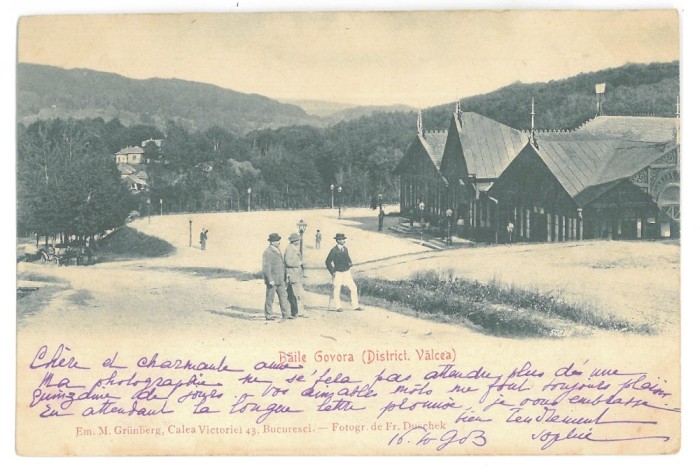 Băile Govora (District. Vâlcea)
Chère et charmante amie
Ma photographie ne se fera pas attendre plus de une
quinzaine de jours. Vos aimables môts me font toujours plaisir
En attendant la longue lettre promise, je vous embrasse
bien tendrement
Em. M. Grünberg, Calea Victoriei 43, Bucuresci. — Fotogr. de Fr. Duschek
903 Sophie